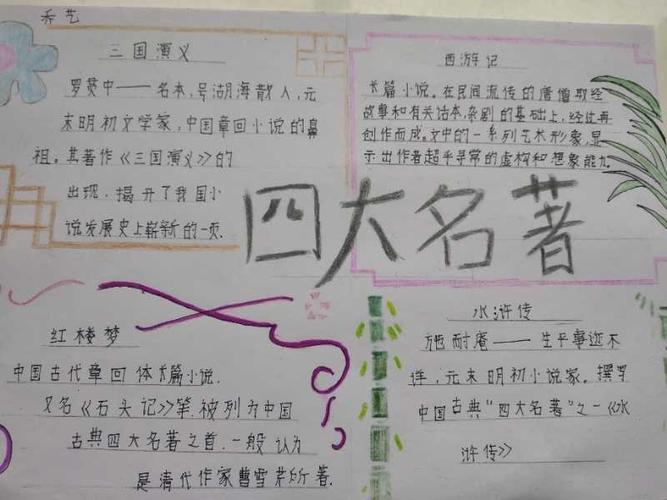 乔艺
三国演义
罗贯中——名本,号湖海散人,元
末明初文学家,中国章回小说的鼻
祖。其著作《三国演义》的
出现,揭开了我国小
说发展史上崭新的一页.
西游记
长篇小说。在民间流传的唐僧取经
故事和有关话本,杂剧的基础上,经过再
创作而成。文中的一系列艺术形象,显
示出作者超乎寻常的虚构和想象能力
四大名著
红楼梦
中国古代章回体长篇小说.
又名《石头记》等.被列为中国
古典四大名著之首.一般认为
是清代作家曹雪芹所著.
水浒传
施耐庵——生平事迹不
详,元末明初小说家。撰写
中国古典"四大名著"之一《水
浒传》